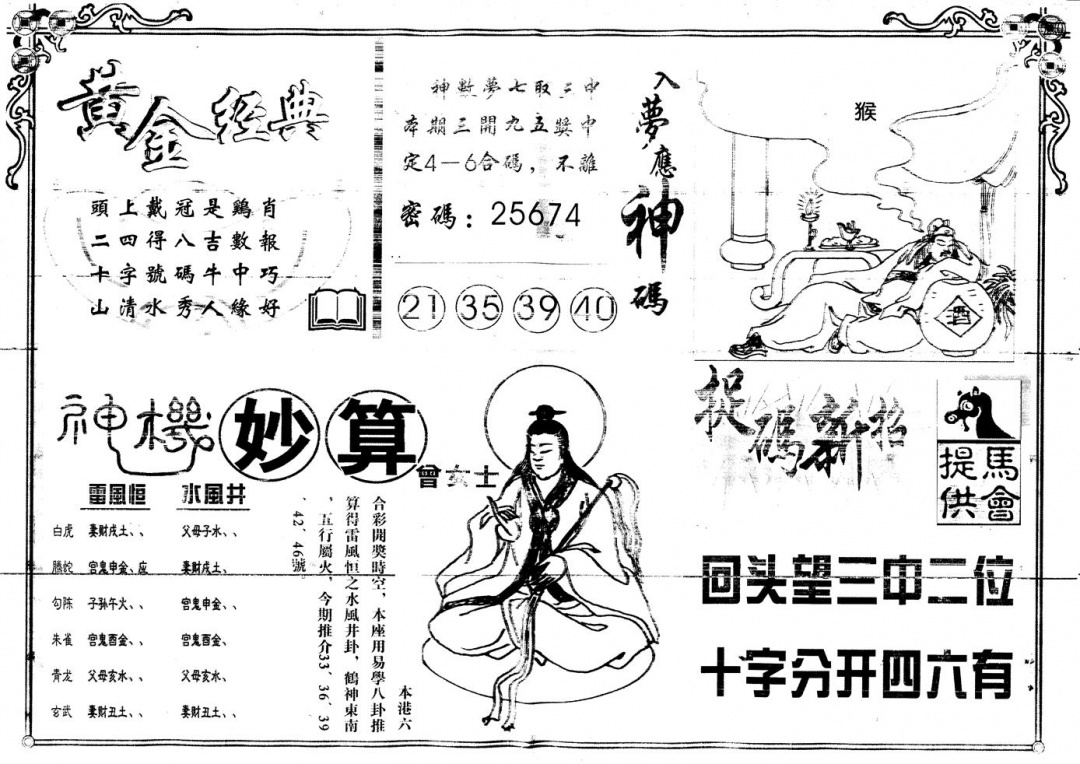 黃金經典
頭上戴冠是鷄肖
二四得八吉數報
十字號碼牛中巧
山清水秀人緣好
神數夢七取三中
本期三開九五獎中
定4—6合碼，不離
密碼：25674
21 35 39 40
入夢應神碼
猴
酒
神機妙算
曾女士
雷風恒 水風井
白虎 妻財戌土、、 父母子水、、
螣蛇 官鬼申金、应 妻財戌土、
勾陈 子孙午火、、 官鬼申金、、
朱雀 官鬼酉金、、 官鬼酉金、
青龙 父母亥水、、 父母亥水、
玄武 妻財丑土、、 妻財丑土、、
本港六
合彩開獎時空，本座用易學八卦推
算得雷風恒之水風井卦，鶴神東南
，五行屬火，今期推介33、36、39
、42、46號。
捉碼新招
馬會提供
回头望三中二位
十字分开四六有